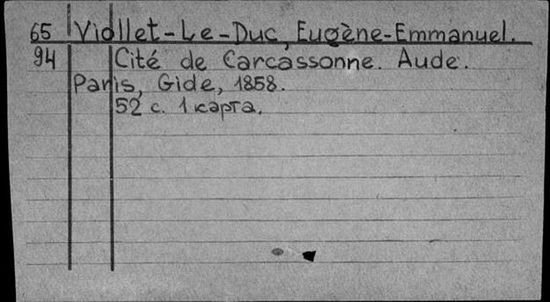 65 Viollet-Le-Duc, Eugène-Emmanuel.
94 Cité de Carcassonne. Aude.
Paris, Gide, 1858.
52 с. 1 карта.